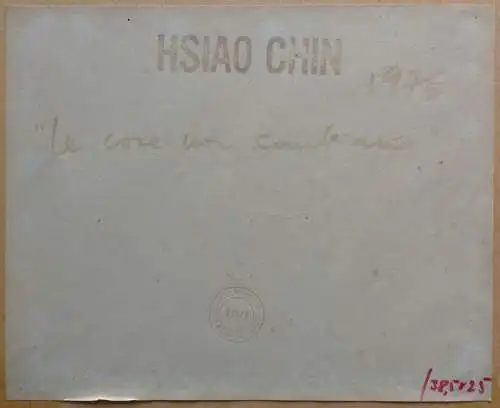 HSIAO CHIN
1976
"le cose non cambiano"
/38,5x25